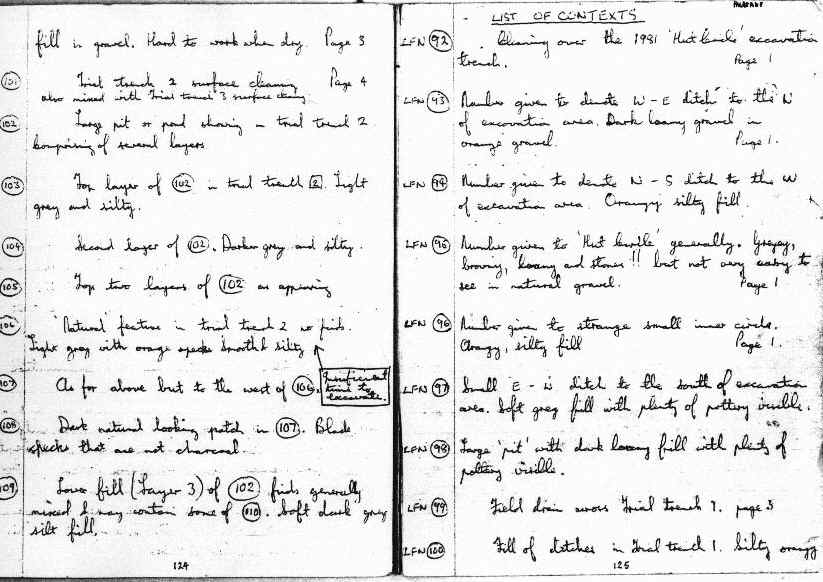 fill in gravel. Hard to work when dry. Page 3
101 Trial trench 2 surface cleaning Page 4
also mixed with Trial trench 3 surface cleaning
102 Large pit or pond showing in trial trench 2
comprising of several layers
103 Top layer of 102 in trial trench 2. Light
grey and silty.
104 Second layer of 102. Darker grey and silty.
105 Top two layers of 102 as appearing
106 'Natural' feature in trial trench 2 no finds.
Light grey with orange specks smooth & silty
Insufficient
time to
excavate.
107 As for above but to the west of 106.
108 Dark natural looking patch in 107. Black
specks that are not charcoal.
109 Lower fill (Layer 3) of 102 finds generally
mixed & may contain some of 110. Soft dark grey
silt fill.
124
LIST OF CONTEXTS
LFN 92 Cleaning over the 1981 'Hut circle' excavation
trench. Page 1
LFN 93 Number given to denote W - E ditch to the N
of excavation area. Dark loamy gravel in
orange gravel. Page 1.
LFN 94 Number given to denote N - S ditch to the W
of excavation area. Orangy silty fill.
LFN 95 Number given to 'Hut circle' generally. Greyey,
browny, loamy and stones!! but not very easy to
see in natural gravel. Page 1
LFN 96 Number given to strange small inner circle.
Orangy, silty fill Page 1.
LFN 97 Small E - W ditch to the south of excavation
area. Soft grey fill with plenty of pottery visible.
LFN 98 Large 'pit' with dark loamy fill with plenty of
pottery visible.
LFN 99 Field drain across Trial trench 1. page 3
LFN 100 Fill of ditches in Trial trench 1. Silty orangy
125